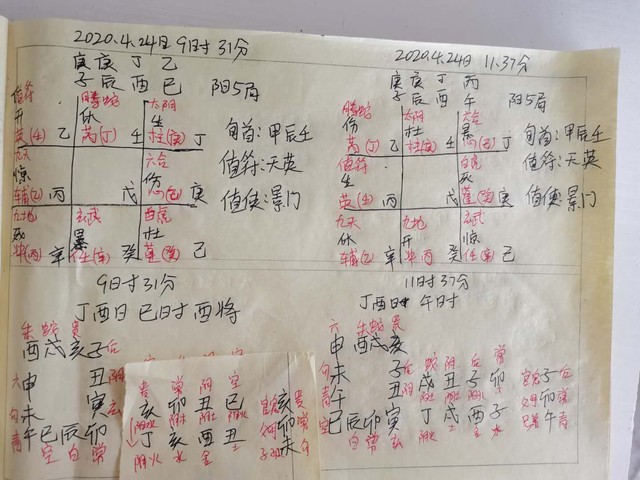 2020.4.24日9时31分
庚庚丁乙
子辰酉巳 阳5局
值符 螣蛇 太阳
开 休 生
英(壬) 乙 芮(丁) 壬 柱(庚) 丁
九天 六合
惊 伤
辅(乙) 丙 戊 心(己) 庚
九地 玄武 白虎
死 景 杜
冲(丙) 辛 任(辛) 癸 蓬(癸) 己
旬首:甲辰壬
值符:天英
值使:景门
2020.4.24日 11.37分
庚庚丁丙
子辰酉午 阳5局
螣蛇 太阳 六合
伤 杜 景
芮(丁) 乙 柱(庚) 壬 心(己) 丁
值符 白虎
生 死
英(壬) 丙 戊 蓬(癸) 庚
九天 九地 玄武
休 开 惊
辅(乙) 辛 冲 丙 癸 任(辛) 己
旬首:甲辰壬
值符:天英
值使:景门
9日时31分
丁酉日 巳时 酉将
朱 蛇 贵
酉戌亥子后
六申 丑阴
勾未 寅玄
青午巳辰卯
空 白 常
贵 常 阴 空
亥 卯 丑 巳
丁 亥 酉 丑
阴火 水 金
官鬼 亥 贵
父母 卯 常
子孙 未 勾
11日时37分
丁酉日 午时
六 朱 蛇 贵
申酉戌亥
勾未 子后
青午 丑阴
空巳辰卯寅
白 常 玄
蛇 阴 后 常
戌 丑 子 卯
丁 戌 酉 子
阴火 土 金 水
官鬼 子 后
父母 卯 常
兄弟 午 青